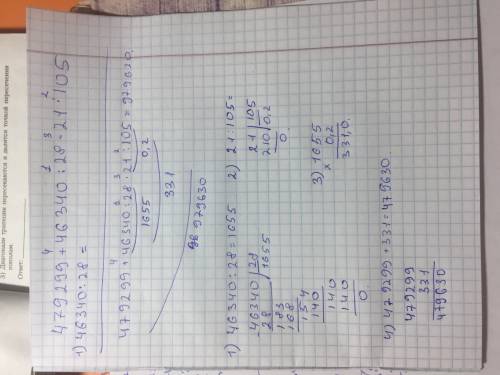 3) Диагонали трапеции пересекаются и делятся точкой пересечения
пополам.
Ответ:
4 1 3 2
479299+46340:28·21:105
1) 46340:28=
4 1 3 2
479299+46340:28·21:105=979630.
1655 0,2
331
979630
1) 46340:28=1655 2) 21:105=
46340|28 21|105
28 |1655 210|0,2
183 0
168
154
140
140
140
0
3) 1655
× 0,2
331,0
4) 479299+331=479630.
479299
331
479630